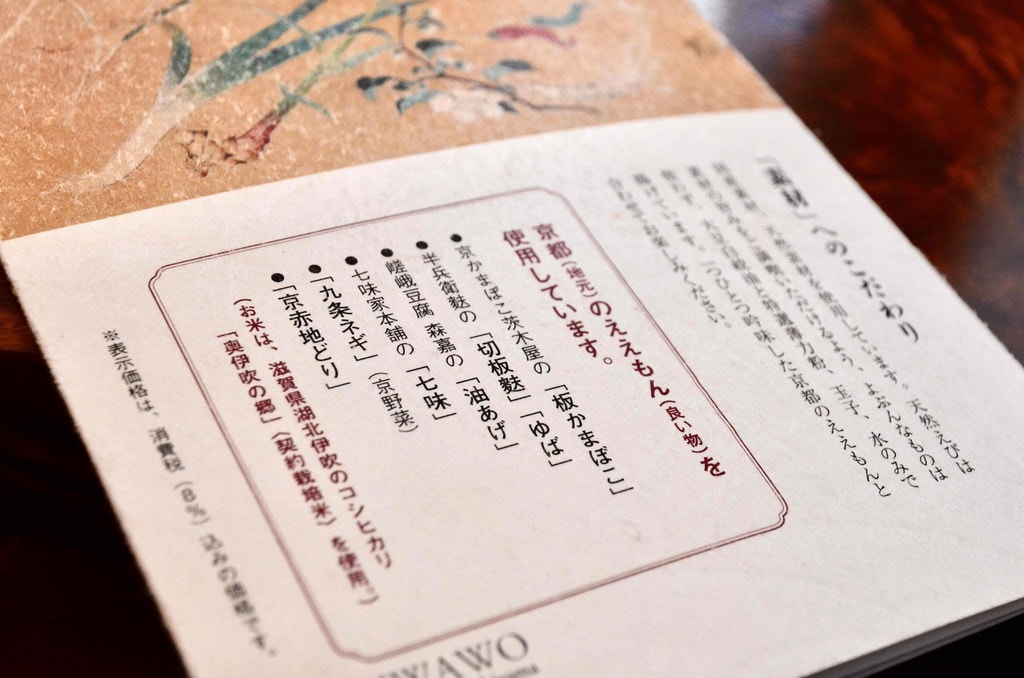 「素材」へのこだわり
対馬海
天然素材を使用しています。天然えびは
素材の旨みをご
いただけるよう、よぶんなものは
使わず、大豆白絞油と
薄力粉、玉子、水のみで
揚げています。一つひとつ吟味した京都のええもんと
お楽しみください。
京都(地元)のええもん(良い物)を
使用しています。
●京かまぼこ茨木屋の「板かまぼこ」
●半兵衛麩の「切板麩」「ゆば」
●嵯峨豆腐 森嘉の「油あげ」
●七味家本舗の「七味」
●「九条ネギ」(京野菜)
●「京赤地どり」
(お米は、滋賀県湖北伊吹のコシヒカリ
「奥伊吹の郷」(契約栽培米)を使用。)
※表示価格は、消費税(8%)込みの価格です。
WAWO